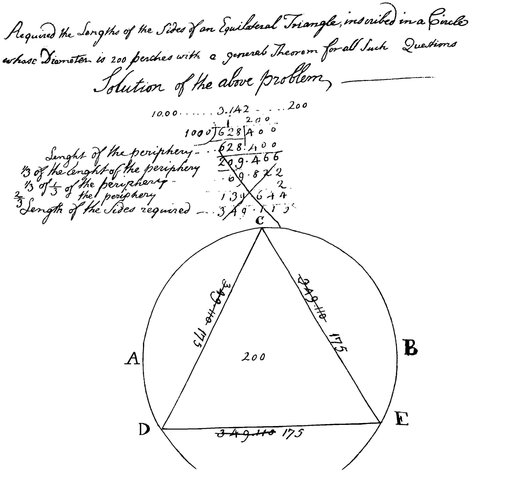 Required the Lengths of the Sides of an Equilateral Triangle, inscribed in a Circle
whose Diameter is 200 perches with a general Theorem for all Such Questions
Solution of the above problem,
1000 ...... 3.142 ...... 200
200
1000) 628 400
Lenght of the periphery - 628.400
1/3 of the Lenght of the periphery 209.466
1/3 of 1/3 of the periphery - 69.822
2
2/3 the periphery 139.644
Length of the Sides required - 349.113
C
349.110 175
349.110 175
A
200
B
D
E
349.110 175